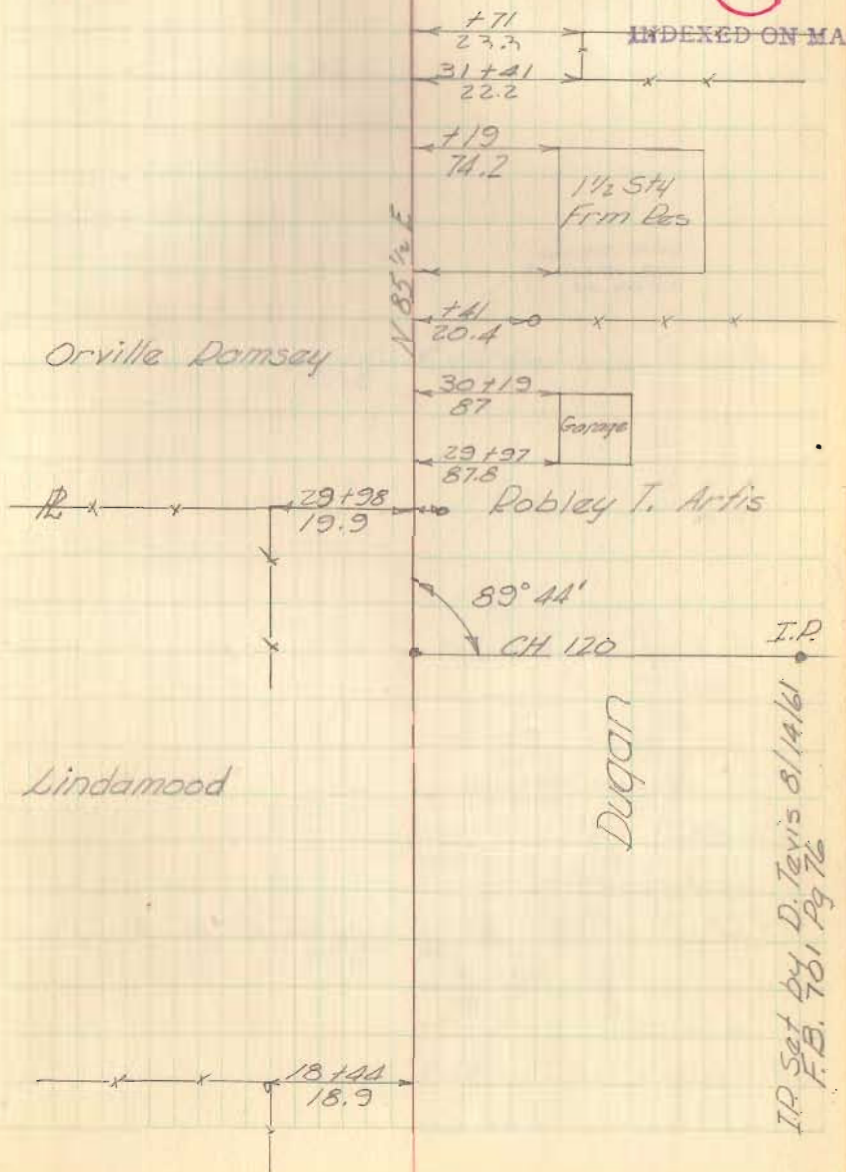 +71
23.3
INDEXED ON MA
31+41
22.2
+19
74.2
1½ Sty
Frm Res
N 85 ½ E
+41
20.4
Orville Ramsey
30+19
87
Garage
29+97
87.8
PL
29+98
19.9
Robley T. Artis
89° 44'
CH 120
I.P.
Dugan
Lindamood
I.P. Set by D. Tevis 8/14/61
F.B. 701 Pg 76
18+44
18.9